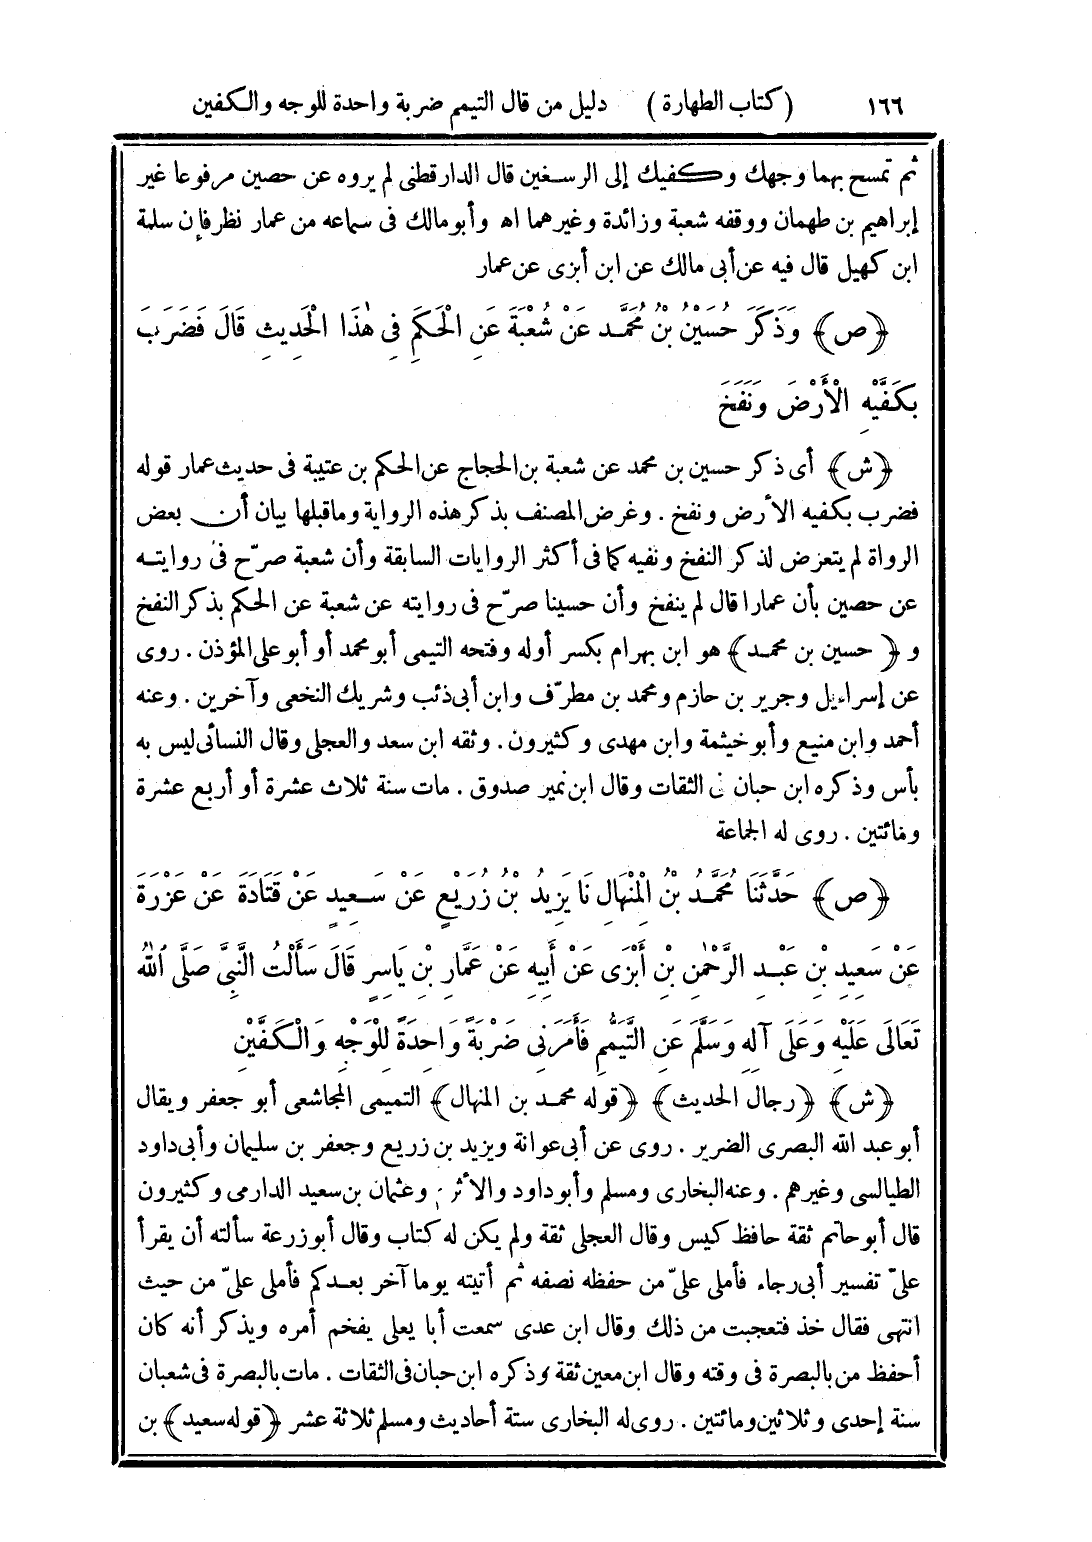 ١٦٦ (كتاب الطهارة) دليل من قال التيمم ضربة واحدة للوجه والكفين
ثم تمسح بهما وجهك وكفيك إلى الرسغين قال الدارقطنى لم يروه عن حصين مرفوعا غير
إبراهيم بن طهمان ووقفه شعبة وزائدة وغيرهما اه وأبو مالك فى سماعه من عمار نظر فإن سلمة
ابن كهيل قال فيه عن أبى مالك عن ابن أبزى عن عمار
﴿ص﴾ وَذَكَرَ حُسَيْنُ بْنُ مُحَمَّدٍ عَنْ شُعْبَةَ عَنِ الْحَكَمِ فِى هٰذَا الْحَدِيثِ قَالَ فَضَرَبَ
بِكَفَّيْهِ الْأَرْضَ وَنَفَخَ
﴿ش﴾ أى ذكر حسين بن محمد عن شعبة بن الحجاج عن الحكم بن عتيبة فى حديث عمار قوله
فضرب بكفيه الأرض ونفخ . وغرض المصنف بذكر هذه الرواية وماقبلها بيان أن بعض
الرواة لم يتعرض لذكر النفخ ونفيه كما فى أكثر الروايات السابقة وأن شعبة صرّح فى روايته
عن حصين بأن عمارا قال لم ينفخ وأن حسينا صرّح فى روايته عن شعبة عن الحكم بذكر النفخ
و ﴿حسين بن محمد﴾ هو ابن بهرام بكسر أوله وفتحه التيمى أبو محمد أو أبو على المؤذن . روى
عن إسراءيل وجرير بن حازم ومحمد بن مطرّف وابن أبى ذئب وشريك النخعى وآخرين . وعنه
أحمد وابن منيع وأبو خيثمة وابن مهدى وكثيرون . وثقه ابن سعد والعجلى وقال النسائى ليس به
بأس وذكره ابن حبان فى الثقات وقال ابن نمير صدوق . مات سنة ثلاث عشرة أو أربع عشرة
ومائتين . روى له الجماعة
﴿ص﴾ حَدَّثَنَا مُحَمَّدُ بْنُ الْمِنْهَالِ نَا يَزِيدُ بْنُ زُرَيْعٍ عَنْ سَعِيدٍ عَنْ قَتَادَةَ عَنْ عَزْرَةَ
عَنْ سَعِيدِ بْنِ عَبْدِ الرَّحْمٰنِ بْنِ أَبْزَى عَنْ أَبِيهِ عَنْ عَمَّارِ بْنِ يَاسِرٍ قَالَ سَأَلْتُ النَّبِىَّ صَلَّى اللهُ
تَعَالَى عَلَيْهِ وَعَلَى آلِهِ وَسَلَّمَ عَنِ التَّيَمُّمِ فَأَمَرَنِى ضَرْبَةً وَاحِدَةً لِلْوَجْهِ وَالْكَفَّيْنِ
﴿ش﴾ ﴿رجال الحديث﴾ ﴿قوله محمد بن المنهال﴾ التميمى المجاشعى أبو جعفر ويقال
أبو عبد الله البصرى الضرير . روى عن أبى عوانة ويزيد بن زريع وجعفر بن سليمان وأبى داود
الطيالسى وغيرهم . وعنه البخارى ومسلم وأبو داود والأثرم وعثمان بن سعيد الدارمى وكثيرون
قال أبو حاتم ثقة حافظ كيس وقال العجلى ثقة ولم يكن له كتاب وقال أبو زرعة سألته أن يقرأ
علىّ تفسير أبى رجاء فأملى علىّ من حفظه نصفه ثم أتيته يوما آخر بعدكم فأملى علىّ من حيث
انتهى فقال خذ فتعجبت من ذلك وقال ابن عدى سمعت أبا يعلى يفخم أمره ويذكر أنه كان
أحفظ من بالبصرة فى وقته وقال ابن معين ثقة وذكره ابن حبان فى الثقات . مات بالبصرة فى شعبان
سنة إحدى وثلاثين ومائتين . روى له البخارى ستة أحاديث ومسلم ثلاثة عشر ﴿قوله سعيد﴾ بن